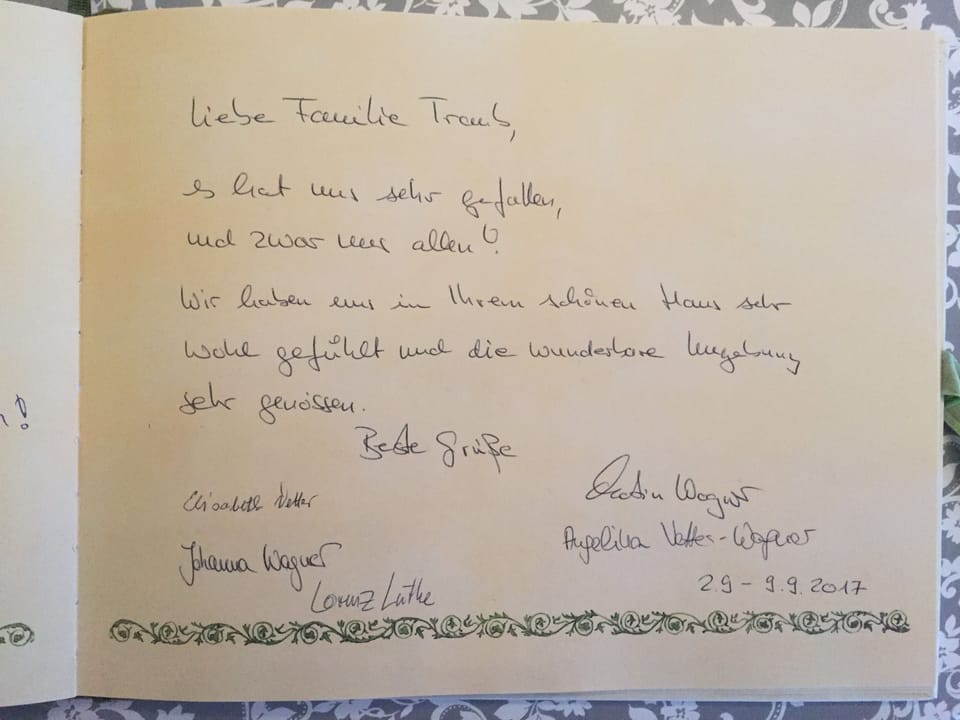 Liebe Familie Traub,
es hat uns sehr gefallen,
und zwar uns allen!
Wir haben uns in Ihrem schönen Haus sehr
wohl gefühlt und die wunderbare Umgebung
sehr genossen.
Beste Grüße
Elisabeth Vetter
Martin Wagner
Angelika Vetter-Wagner
Johanna Wagner
Lorenz Luthe
2.9 – 9.9.2017
!